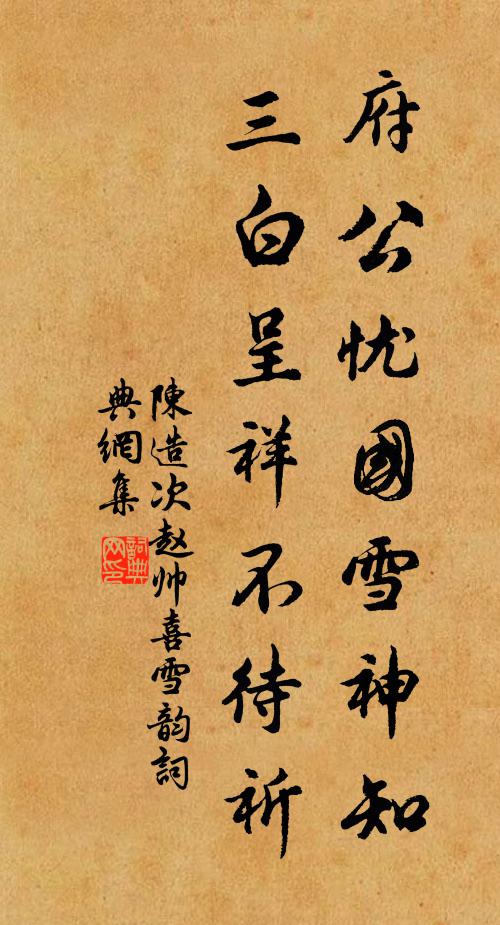 府公忧國雪神知
三白呈祥不待祈
陳造次赵帅喜雪韵詞
典網集
詞典
网印